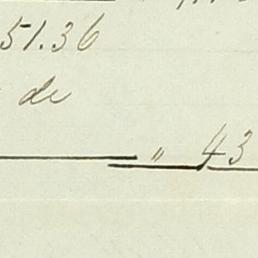 51.36
de
" 43